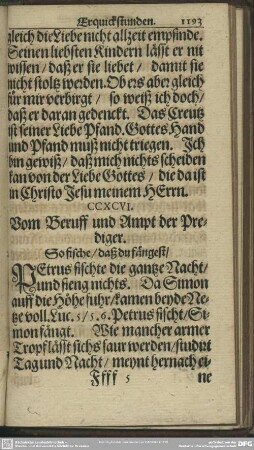 Erquickstunden. 1193
gleich die Liebe nicht allzeit empfinde.
Seinen liebsten Kindern lässt er nit
wissen / daß er sie liebet / damit sie
nicht stoltz werden. Ob ers aber gleich
für mir verbirgt / so weiß ich doch /
daß er daran gedenckt. Das Creutz
ist seiner Liebe Pfand. Gottes Hand
und Pfand muß nicht triegen. Ich
bin gewiß / daß mich nichts scheiden
kan von der Liebe Gottes / die da ist
in Christo Jesu meinem HErrn.
CCXCVI.
Vom Beruff und Ampt der Pre-
diger.
So fische / daß du fängest /
PEtrus fischte die gantze Nacht /
und fieng nichts. Da Simon
auff die Höhe fuhr / kamen beyde Ne-
tze voll. Luc. 5 / 5. 6. Petrus fischt / Si-
mon fängt. Wie mancher armer
Tropf lässt sichs saur werden / studirt
Tag und Nacht / meynt hernach ei-
Ffff 5 ne
DFG